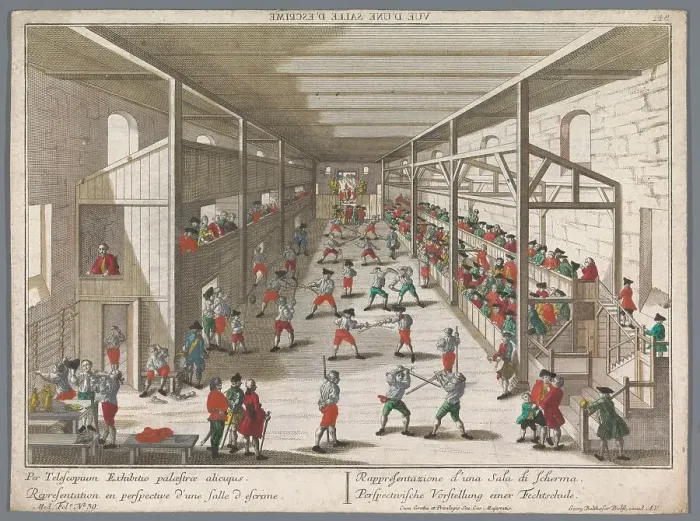 VUE D'UNE SALLE D'ESCRIME
Per Telescopium Exhibitio palæstræ alicujus.
Representation en perspective d'une Salle d escrime.
Med. Fol. No. 39.
Rappresentazione d'una Sala di Scherma.
Perspectivische Vorstellung einer Fechtschule.
Cum Gratia et Privilegio Sac. Caes. Majestatis.
Georg Balthasar Probst, excud. A.V.